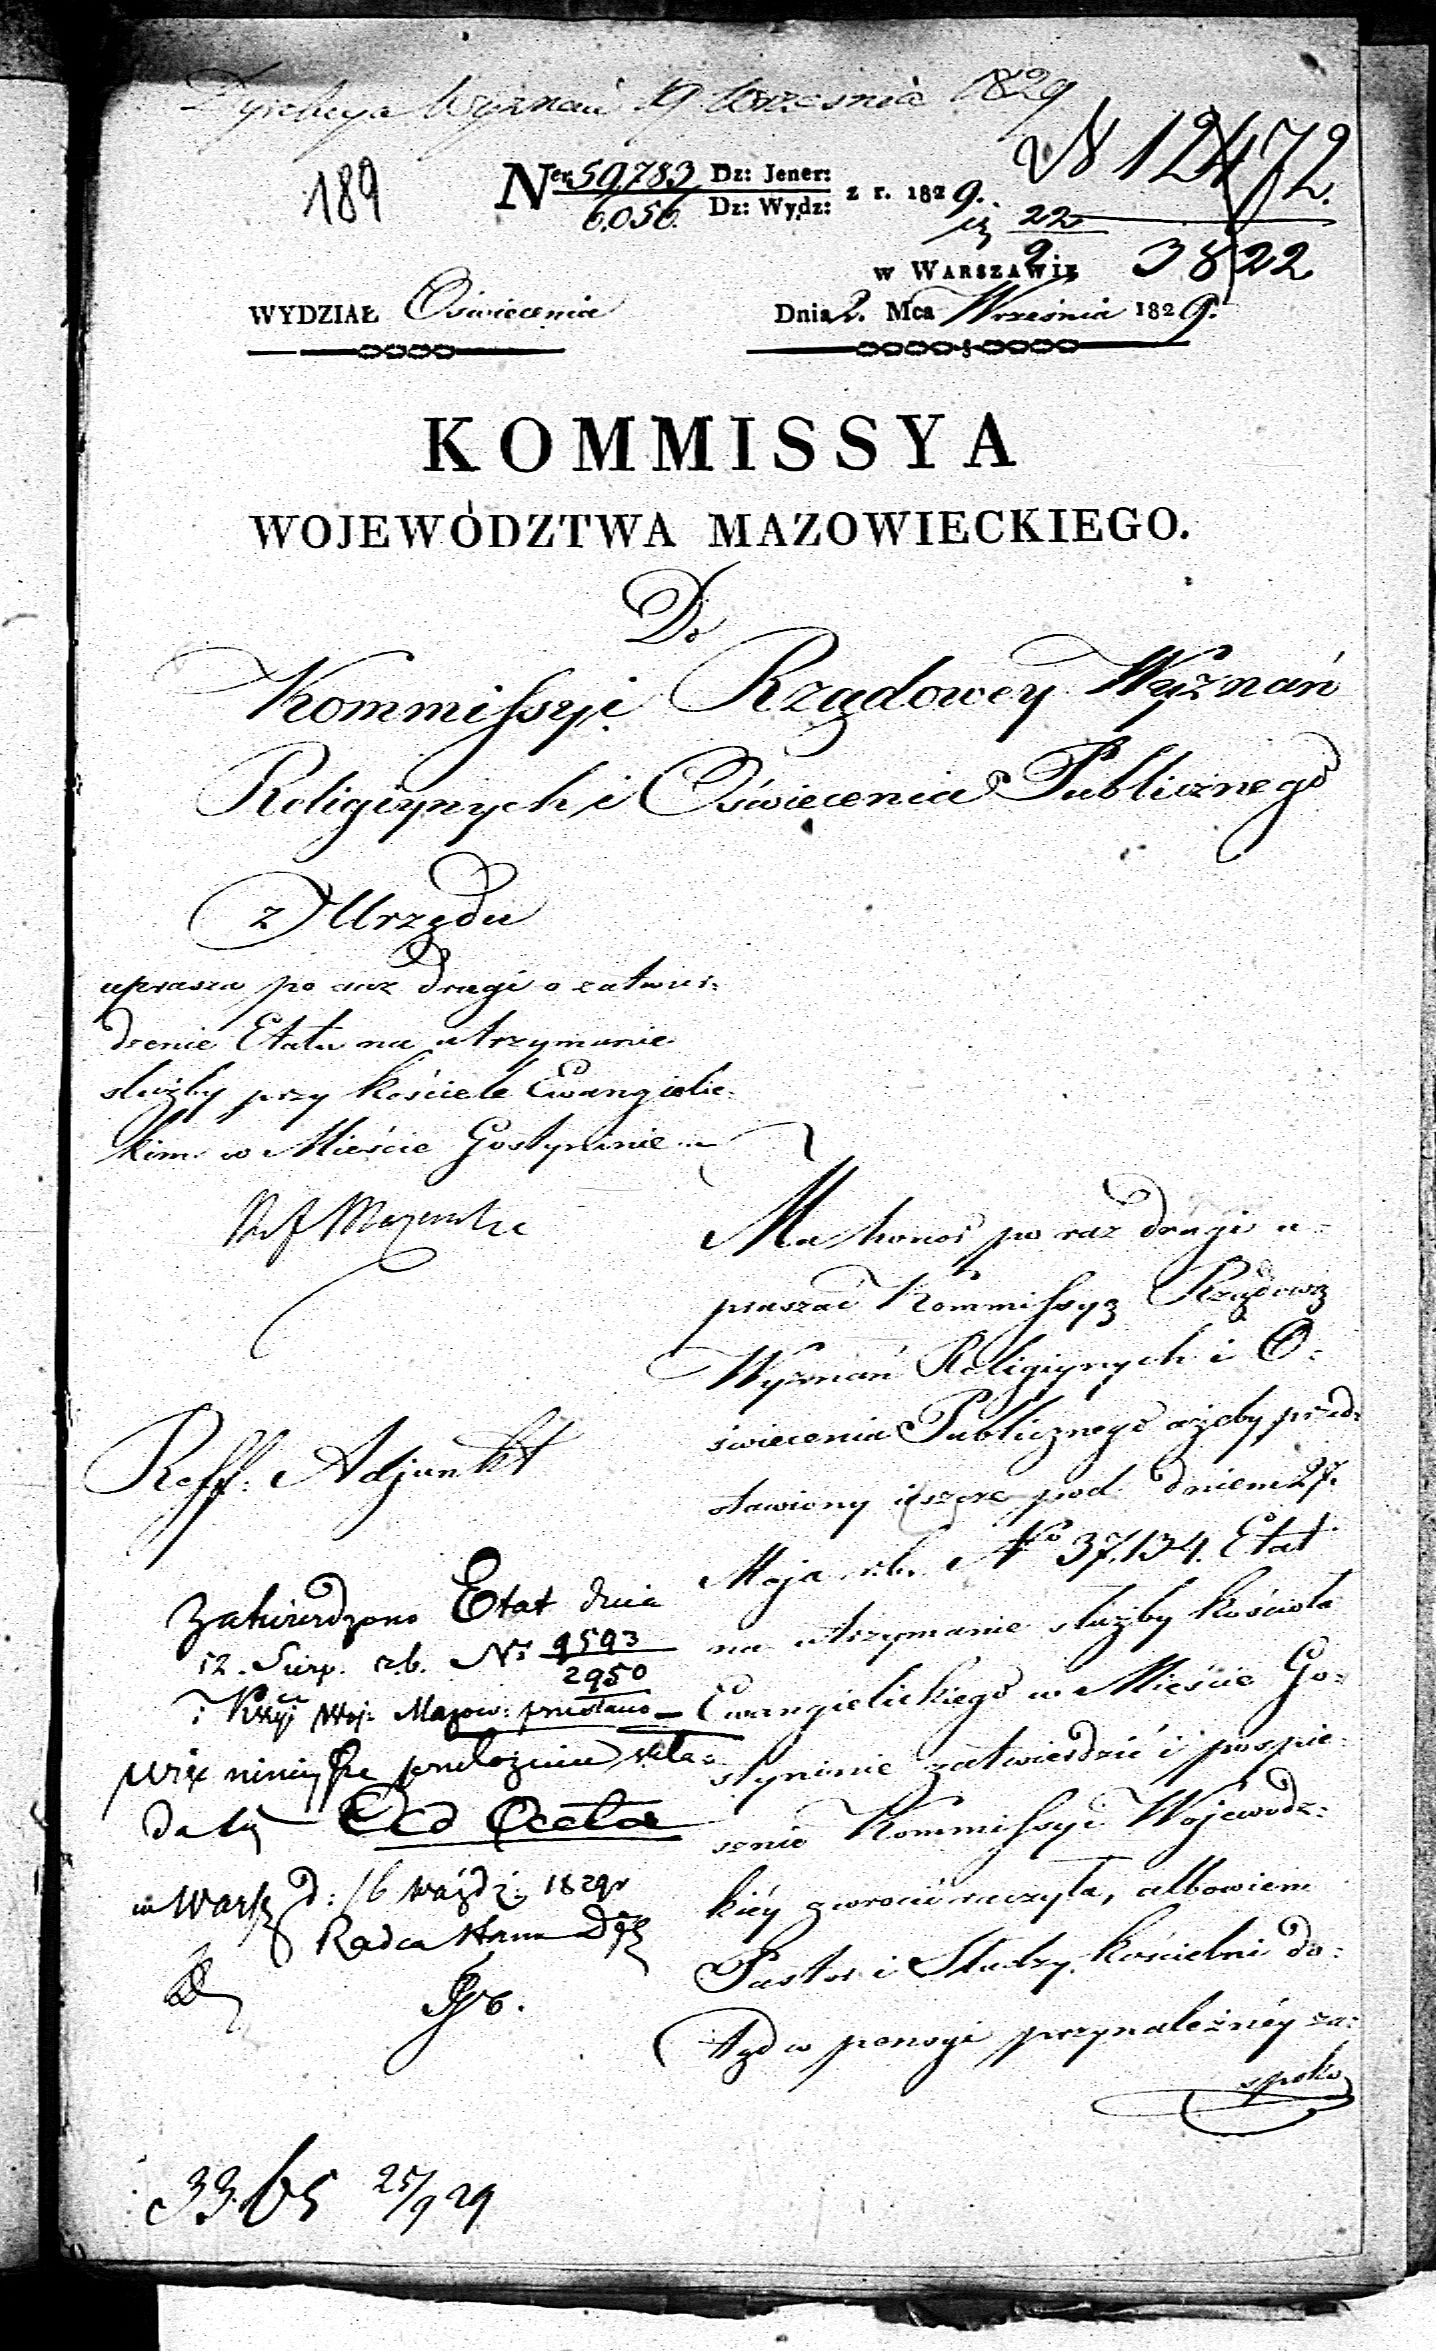 Dyrekcya Wyznań 19 Września 1829
189
N 12472
3822
Ner 59783 Dz: Jener:
6.056. Dz: Wydz:
z r. 1829.
22
9
w WARSZAWIE
WYDZIAŁ Oświecenia
Dnia 2. Mca Września 1829.
KOMMISSYA
WOJEWÓDZTWA MAZOWIECKIEGO.
Do
Kommissyi Rządowey Wyznań
Religiynych i Oświecenia Publicznego
z Urzędu
uprasza po raz drugi o zatwier=
dzenie Etatu na utrzymanie
służby przy kościele Ewangielic=
kim w Mieście Gostyninie
Reff. Adjunkt
Zatwierdzono Etat dnia
12. Sierp. r.b. Nr 9593
2950
i Kssyi Woj. Mazow: przesłano
więc ninieysze przełożenie skła=
da się Ad Acta
w Warsz d: 16 Paźdz. 1829r
Radca Stanu
Ma honor po raz drugi u=
praszać Kommissyą Rządową
Wyznań Religiynych i O=
świecenia Publicznego ażeby przed=
stawiony jeszcze pod dniem 27.
Maja r.b. No 37.134. Etat
na utrzymanie służby kościoła
Ewangielickiego w Mieście Go=
styninie zatwierdzić i pospie=
sznie Kommissyi Wojewódz=
kiéy zwrócić raczyła, albowiem
Pastor i Słudzy kościelni do=
tąd w pensyi przynależnéy za=
spoko
33.65 25/9 29